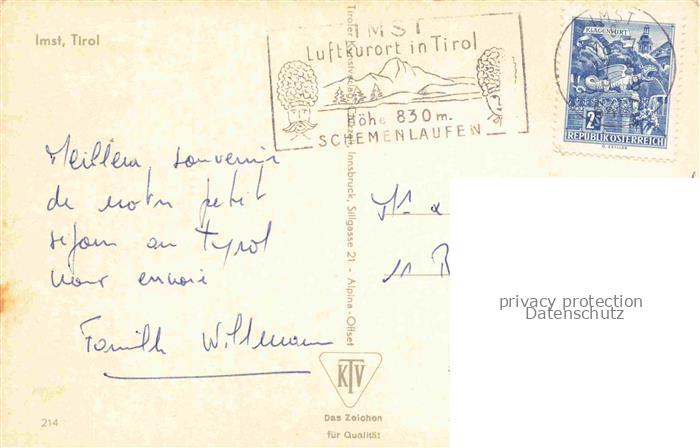 Imst, Tirol
IMST
Luftkurort in Tirol
Höhe 830 m.
SCHEMENLAUFEN
IMST
KLAGENFURT
2S
REPUBLIK ÖSTERREICH
Meilleur souvenir
de notre petit
séjour au Tyrol
vous envoie
Famille
Innsbruck, Sillgasse 21 - Alpina-Offset
11
privacy protection
Datenschutz
KTV
Das Zeichen
für Qualität
214